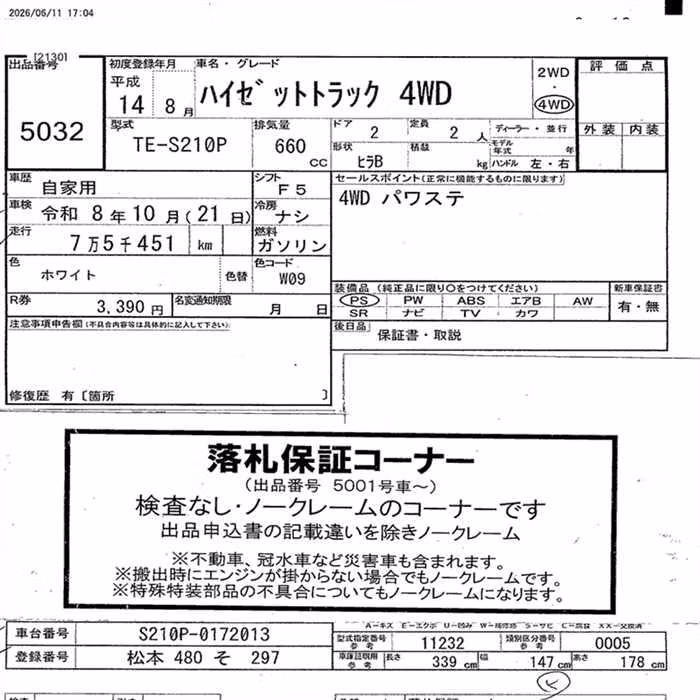 2026/06/11 17:04
[2130]
出品番号
5032
初度登録年月
平成
14 8月
車名・グレード
ハイゼットトラック 4WD
2WD
・
4WD
評価点
外装 内装
型式
TE-S210P
排気量
660
cc
ドア 2
定員 2 人
ディーラー・並行
モデル年式 年
形状 ヒラB
積載 kg
ハンドル 左・右
車歴 自家用
シフト F5
セールスポイント(正常に機能するものに限ります)
4WD パワステ
車検 令和 8年10月(21日)
冷房 ナシ
走行 7万5千451 km
燃料 ガソリン
色 ホワイト 色替
色コード W09
装備品 (純正品に限り○をつけてください)
新車保証書
PS PW ABS エアB AW
有・無
SR ナビ TV カワ
R券 3,390円
名変通知期限 月 日
後日品 保証書・取説
注意事項申告欄(不具合内容等は具体的に記入して下さい):
修復歴 有〔箇所 〕
落札保証コーナー
(出品番号 5001号車~)
検査なし・ノークレームのコーナーです
出品申込書の記載違いを除きノークレーム
※不動車、冠水車など災害車も含まれます。
※搬出時にエンジンが掛からない場合でもノークレームです。
※特殊特装部品の不具合についてもノークレームになります。
A-キズ E-エクボ U-凹み
車台番号 S210P-0172013
型式指定番号 参考 11232
類別区分番号 参考 0005
登録番号 松本 480 そ 297
車庫証明用 参考 長さ 339 cm 幅 147 cm 高さ 178 cm